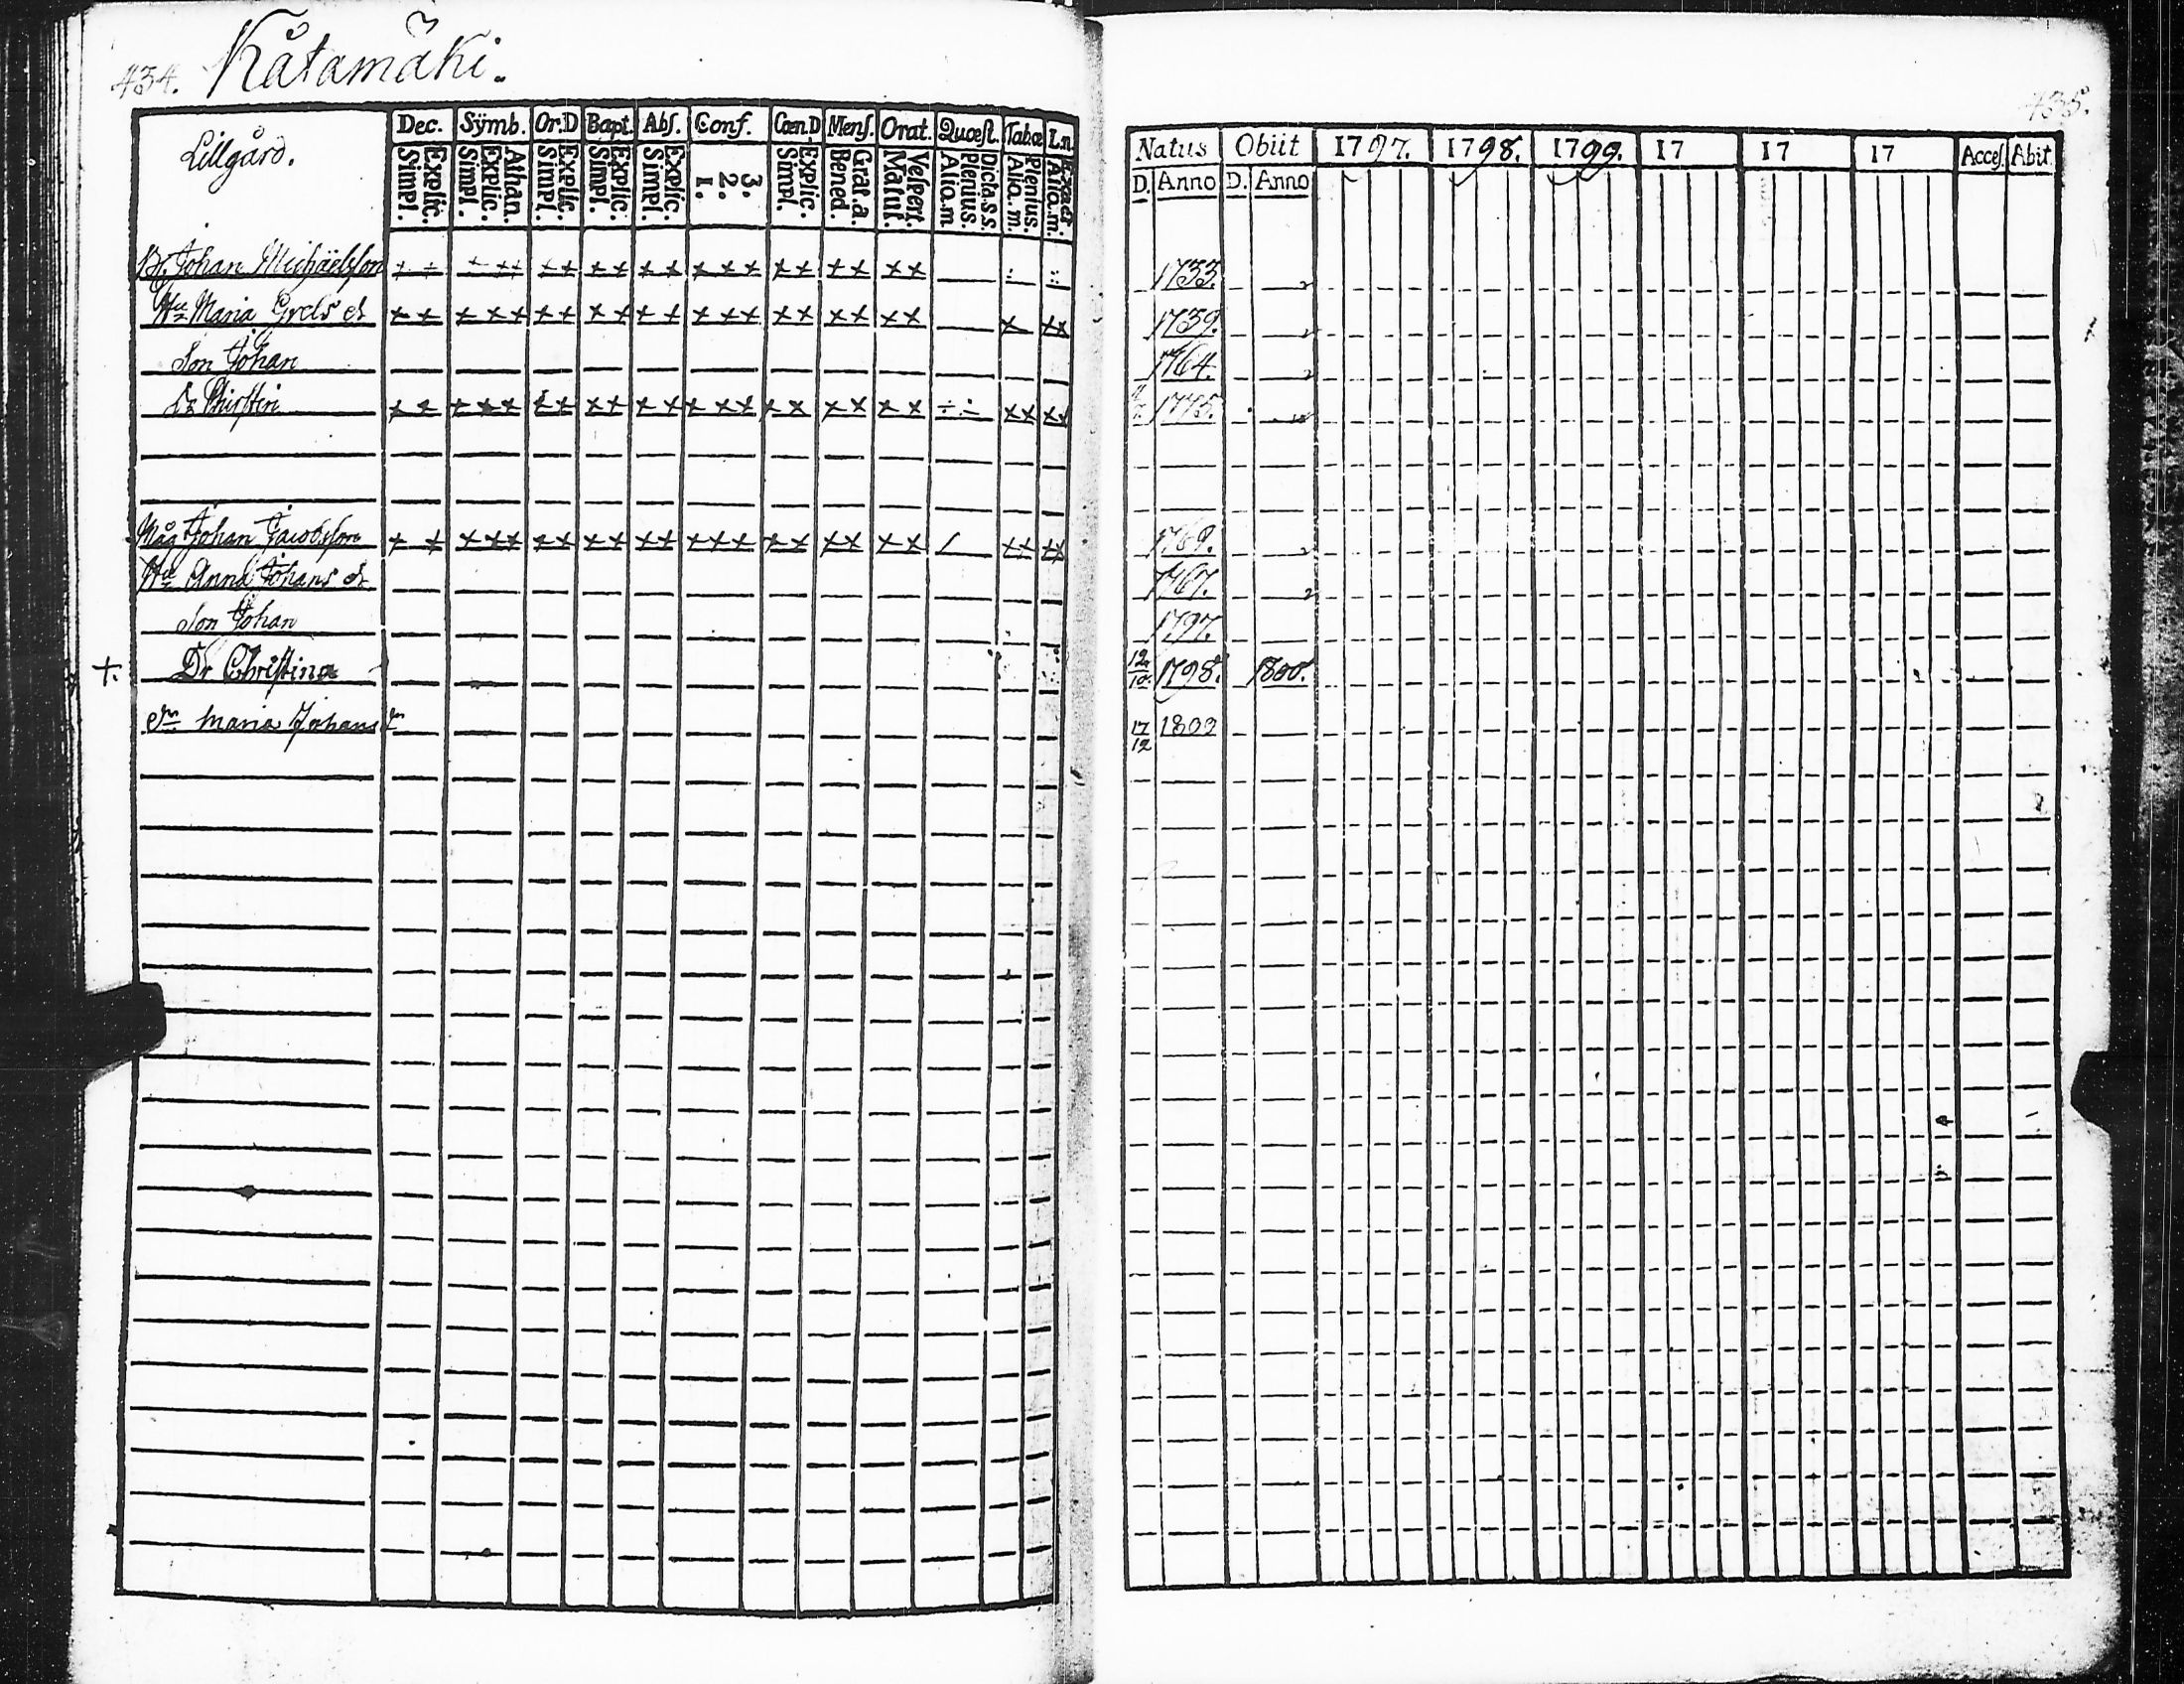 434. Kåtamäki.
Lillgård.
Dec. Sÿmb. Or.D Bapt. Abſ. Conf. Cœn.D Menſ. Orat. Quœſt. Tabœ L.n
Explic. Simpl. Athan. Explic. Simpl. Explic. Simpl. Explic. Simpl. Explic. Simpl. 3. 2. 1. Explic. Simpl. Grat.a. Bened. Veſpert. Matut. Dicta.s.s. Plenius. Alio.m Plenius. Alio.m. Exact. Alio.m.
Johan Michäelsſon
Maria Grels dr
Son Johan
Dr Chirſtin
Måg Johan Jacobsſon
Hu Anna Johans dr
Son Johan
+. Dr Chriſtina
Dr Maria Johans dr
435.
Natus Obiit 1797. 1798. 1799. 17 17 17 Acceſ. Abit.
D. Anno D. Anno
1733.
1739.
1764.
1775.
1769.
1767.
1797.
12/10. 1798. 1800.
17/12 1802